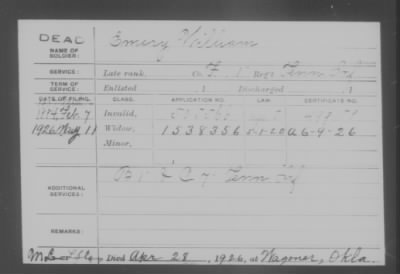 DEAD
NAME OF SOLDIER: Emery William
SERVICE: Late rank, Co. F, Reg't Tenn
TERM OF SERVICE: Enlisted , 1 Discharged , 1
DATE OF FILING. CLASS. APPLICATION NO. LAW. CERTIFICATE NO.
7 Invalid,
1926 May 11 Widow, 1538356 5-1-20 A 6-9-26
Minor,
ADDITIONAL SERVICES: Tenn
REMARKS:
Died Apr 28, 1926, at Wagoner, Okla.